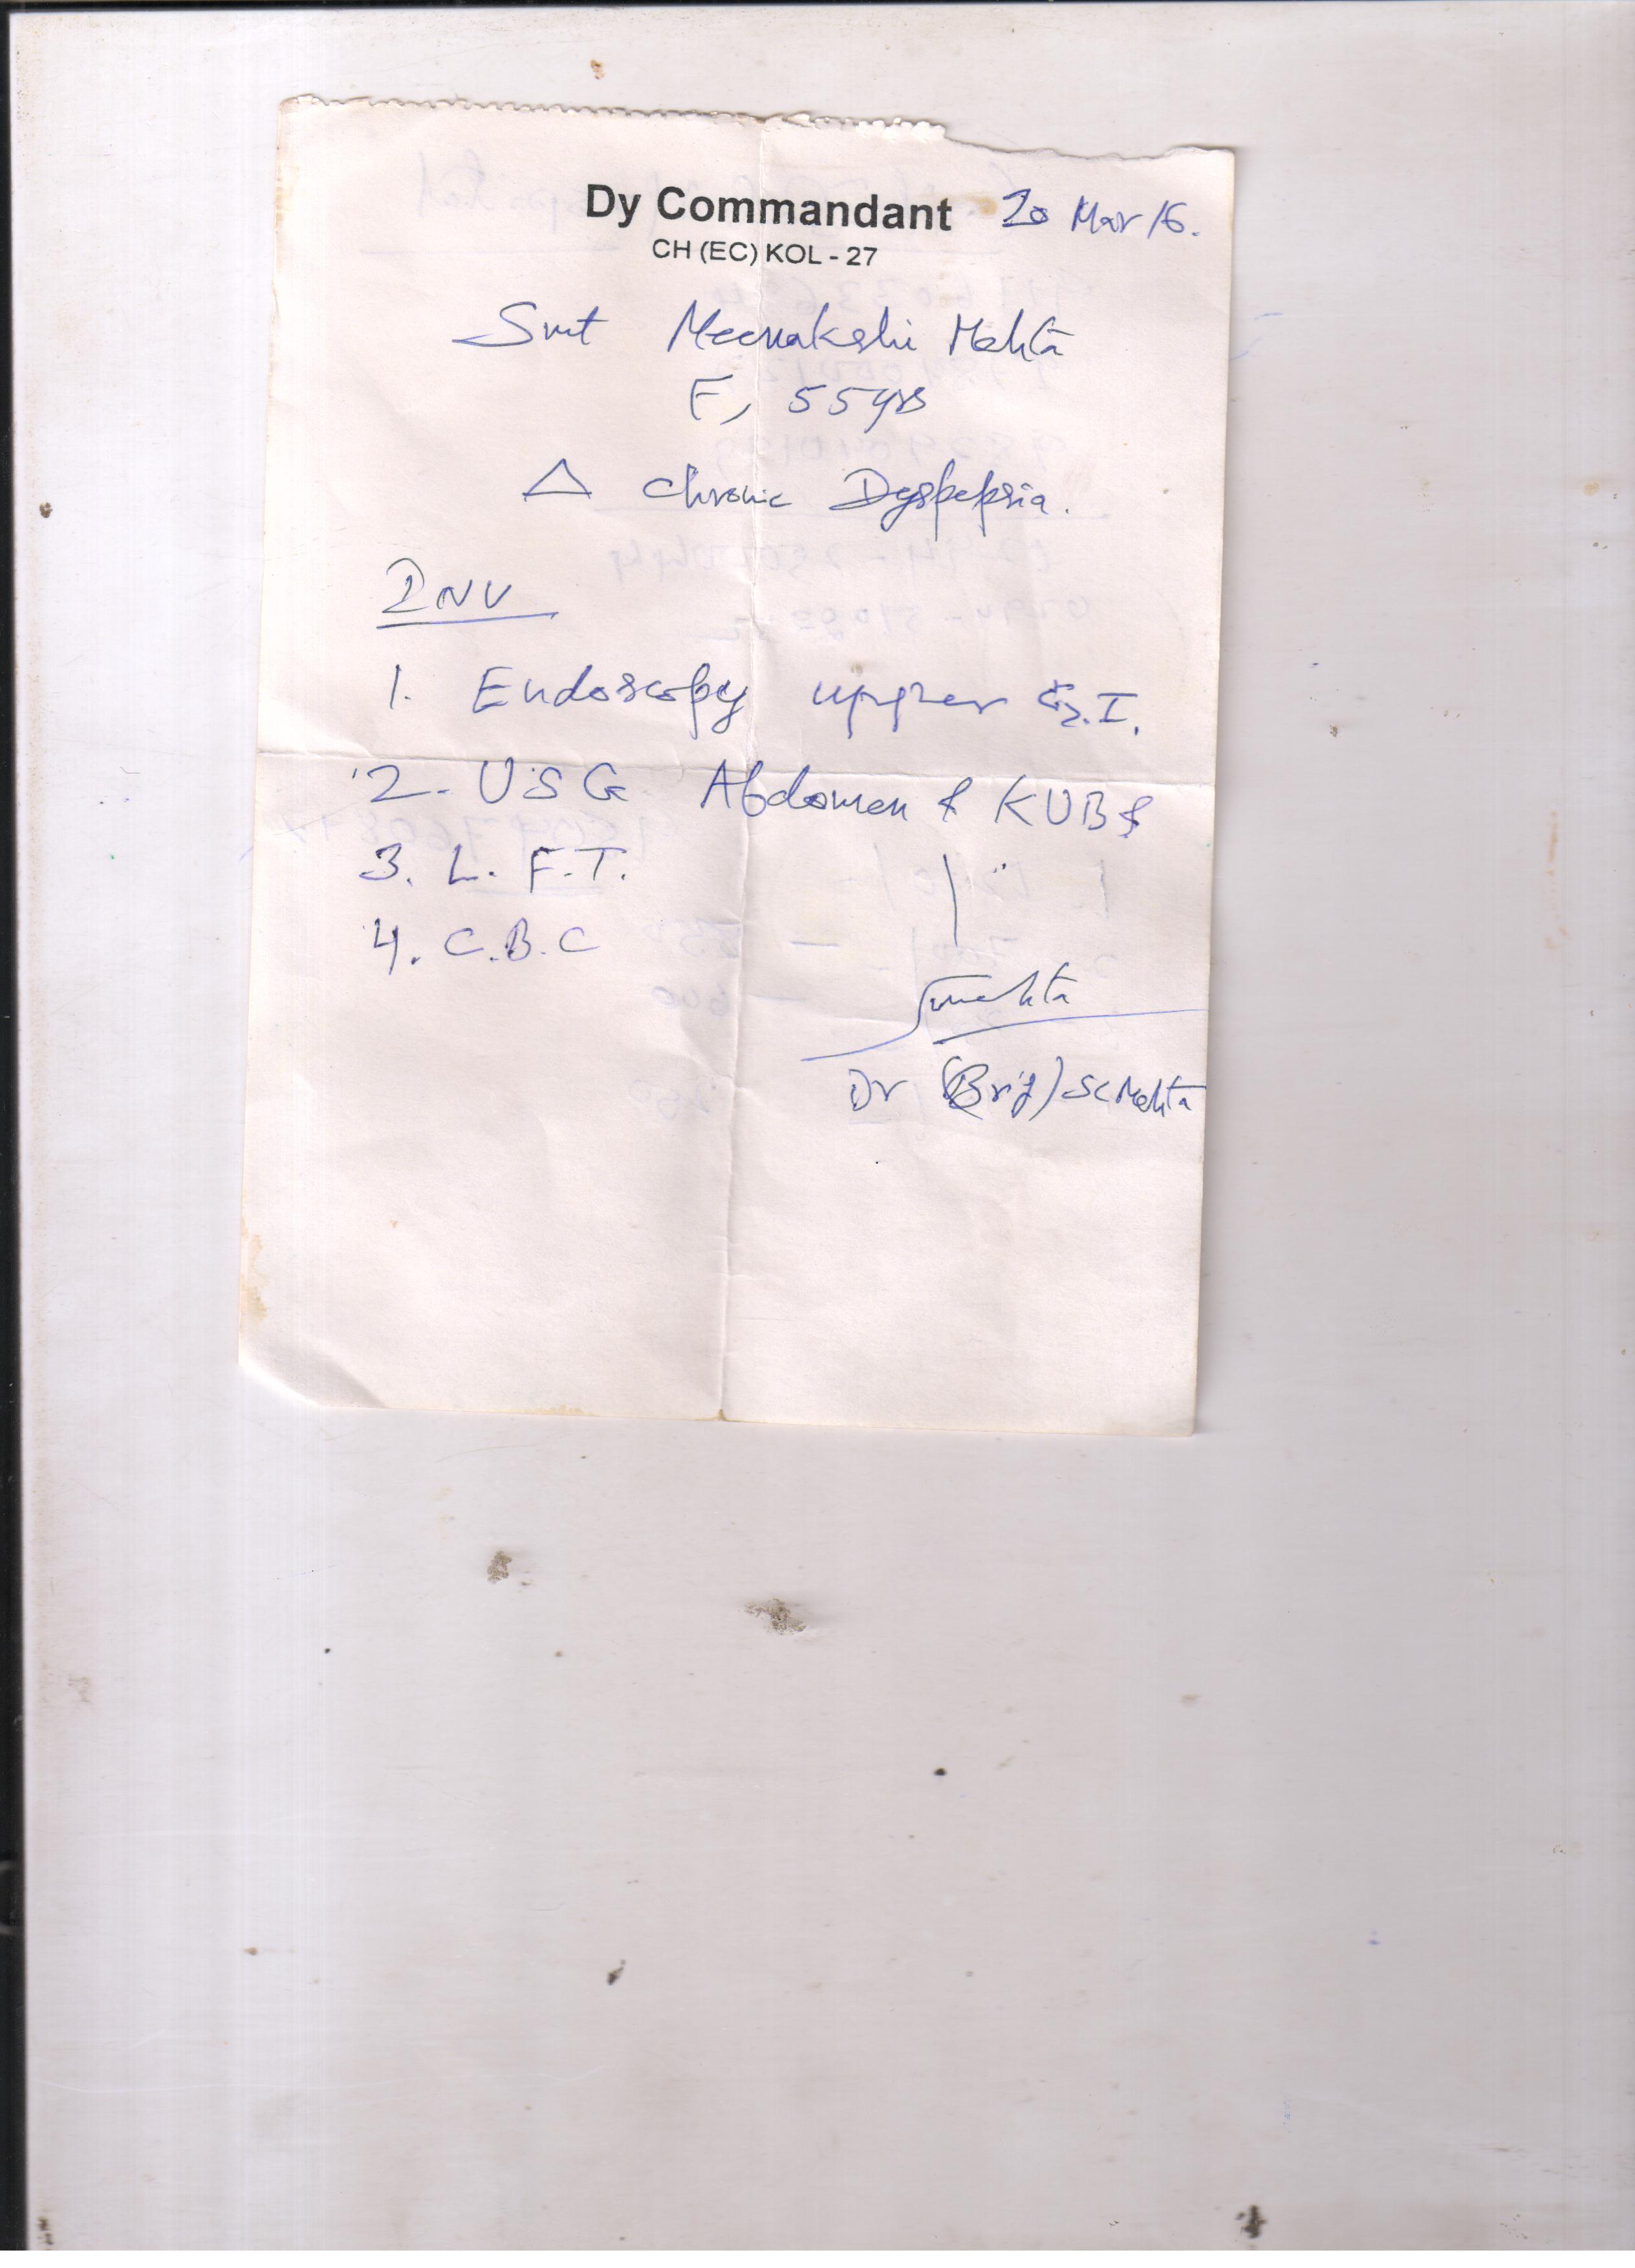 Dy Commandant 20 Mar 16.
CH (EC) KOL - 27
Smt Meenakshi Mehta
F, 55yrs
Δ Chronic Dyspepsia.
INV
1. Endoscopy upper G.I.
2. USG Abdomen & KUB &
3. L. F. T.
4. C.B.C
Smehta
Dr (Brig) SC Mehta